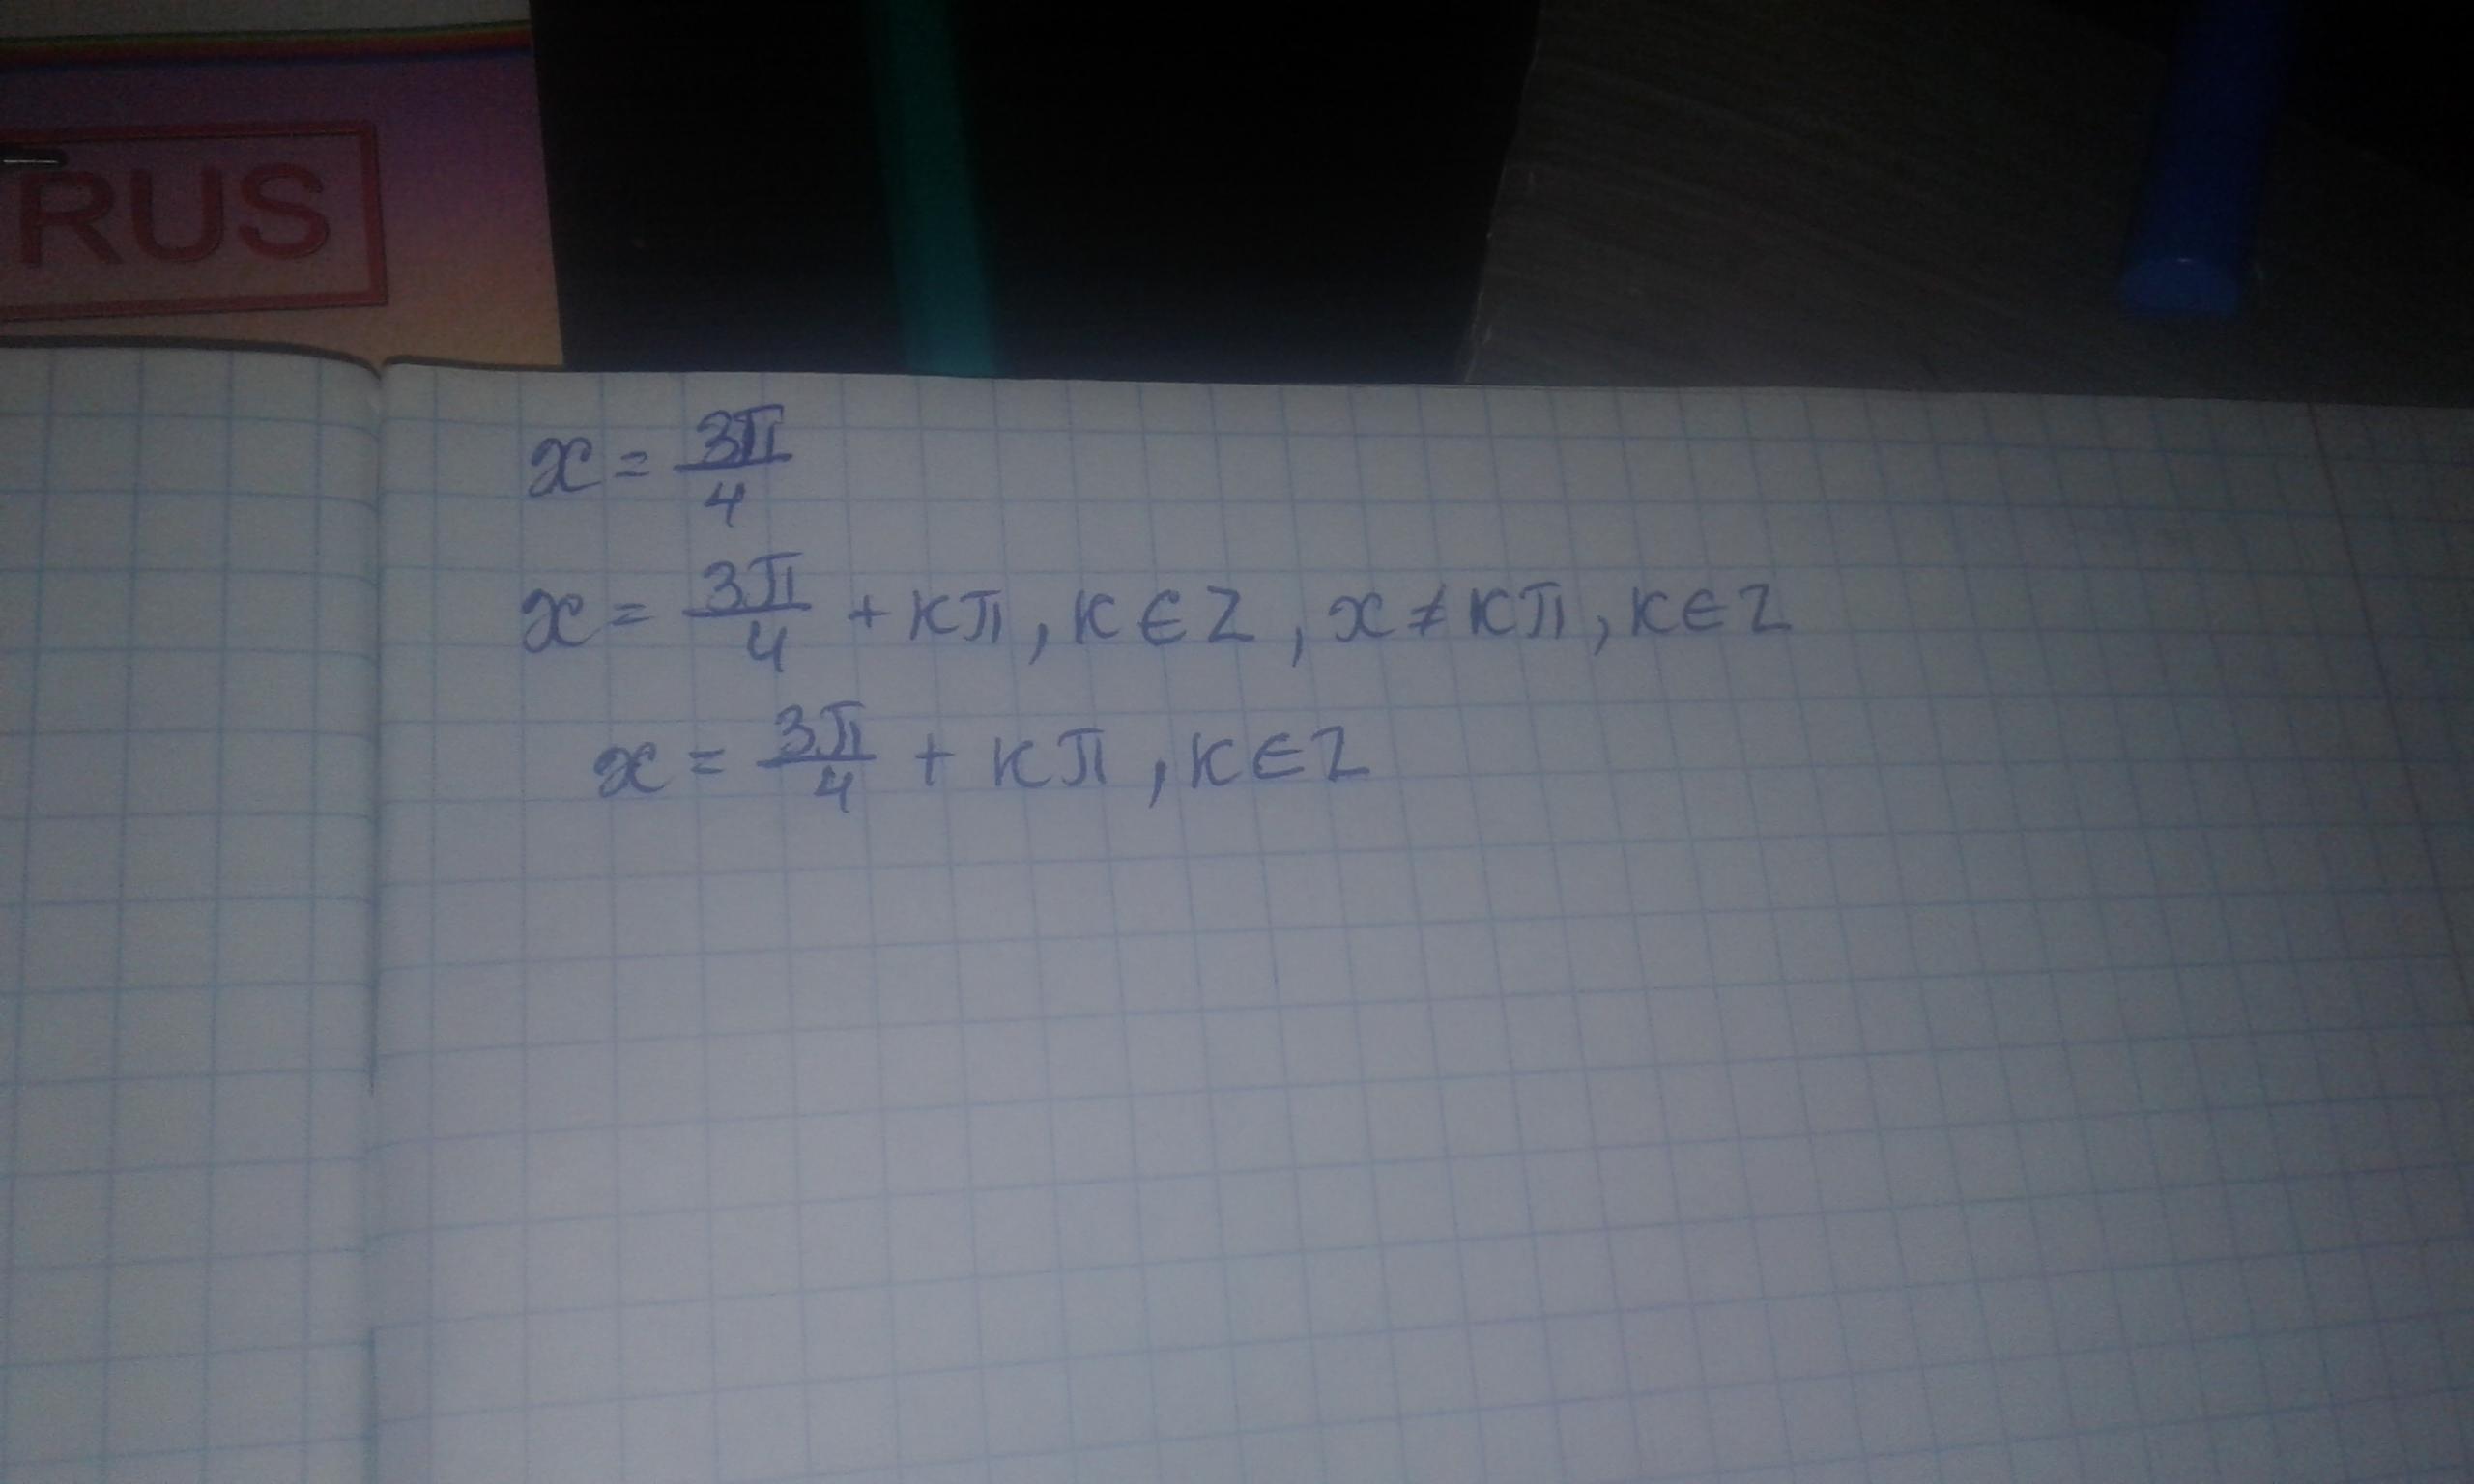 RUS
x = 3π/4
x = 3π/4 + kπ, k ∈ Z, x ≠ kπ, k ∈ Z
x = 3π/4 + kπ, k ∈ Z